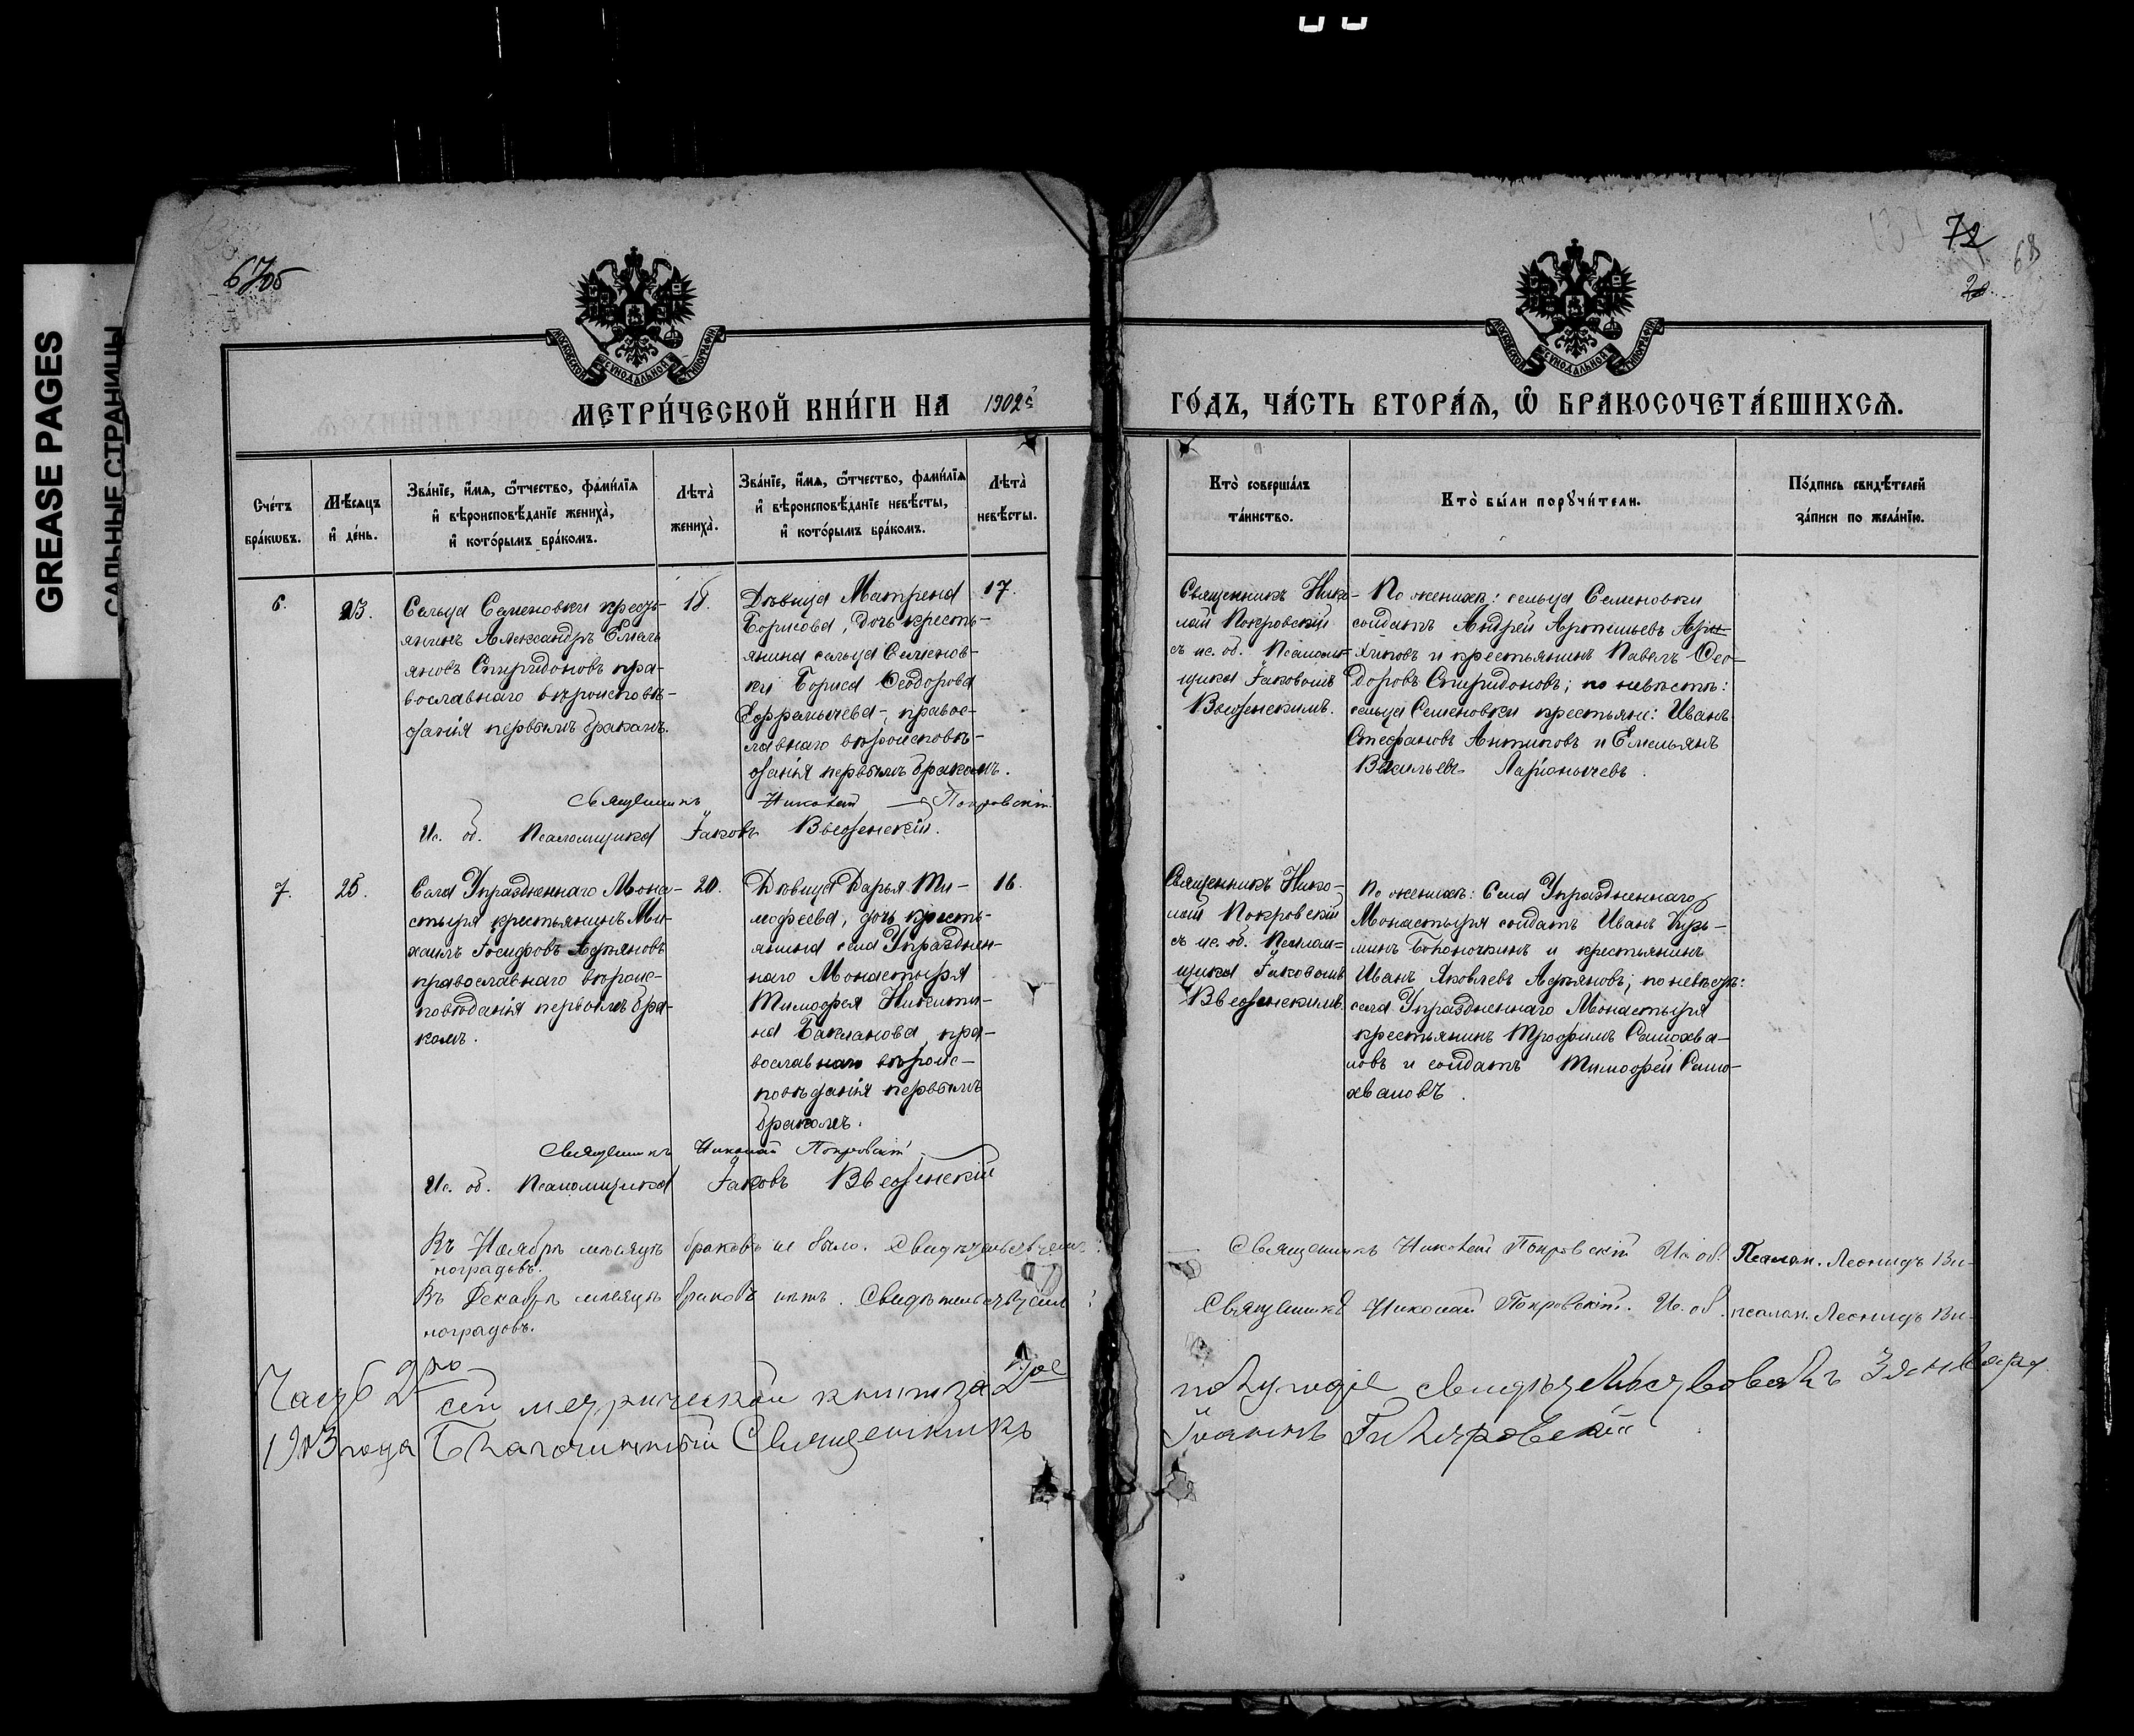 GREASE PAGES
САЛЬНЫЕ СТРАНИЦЫ
67об
72
68
МОСКОВСКОЙ СѴНОДАЛЬНОЙ ТИПОГРАФІИ
МОСКОВСКОЙ СѴНОДАЛЬНОЙ ТИПОГРАФІИ
МЕТРИ́ЧЕСКОЙ КНИ́ГИ НА 1902й
ГО́ДЪ, ЧА́СТЬ ВТОРА́Ѧ, Ѡ҆ БРАКОСОЧЕТА́ВШИХСѦ.
Сче́тъ бра́кѡвъ.
Мѣ́сяцъ и҆ де́нь.
Зва́нїе, и҆́мѧ, ѻ҆́тчество, фами́лїѧ
и҆ вѣроисповѣ́данїе жениха̀,
и҆ кото́рымъ бра́комъ.
Лѣта̀ жениха̀.
Зва́нїе, и҆́мѧ, ѻ҆́тчество, фами́лїѧ
и҆ вѣроисповѣ́данїе невѣ́сты,
и҆ кото́рымъ бра́комъ.
Лѣта̀ невѣ́сты.
Кто̀ соверша́лъ та́инство.
Кто̀ бы́ли порꙋчи́тели.
По́дпись свидѣ́телей
за́писи по жела́нїю.
6.
23.
Сельца Семеновки кресть-
янинъ Александръ Емель
яновъ Спиридоновъ пра-
вославнаго вѣроисповѣ-
данія первымъ бракомъ.
18.
Дѣвица Матрена
Борисова, дочь кресть-
янина сельца Семенов-
ки Бориса Ѳеодорова
правос-
лавнаго вѣроисповѣ-
данія первымъ бракомъ.
17.
Священникъ Нико-
лай Покровскій
съ ис. об. Псалом=
щика Іаковомъ
Введенскимъ.
По женихѣ: сельца Семеновки
солдатъ Андрей Артемьевъ
и крестьянинъ Павелъ Ѳео-
доровъ Спиридоновъ; по невѣстѣ:
сельца Семеновки крестьяне: Иванъ
Стефановъ Антиповъ и Емельянъ
Васильевъ Ларіонычевъ.
Священникъ Николай Покровскій
Ис. об. Псаломщика Іаковъ Введенскій.
7.
25.
Села Упраздненнаго Мона-
стыря крестьянинъ Ми-
хаилъ Іосифовъ Адрьяновъ
православнаго вѣроис-
повѣданія первымъ бра-
комъ.
20.
Дѣвица Дарья Ти-
моѳеева, дочь кресть-
янина села Упразднен-
наго Монастыря
Тимоѳея Никити-
на Бакланова, пра-
вославнаго вѣроис-
повѣданія первымъ
бракомъ.
16.
Священникъ Нико-
лай Покровскій
съ ис. об. Псалом=
щика Іаковомъ
Введенскимъ.
По женихѣ: Села Упраздненнаго
Монастыря солдатъ Иванъ Кузь-
минъ и крестьянинъ
Иванъ Яковлевъ Адрьяновъ; по невѣстѣ:
села Упраздненнаго Монастыря
крестьянинъ Трофимъ Самохва-
ловъ и солдатъ Тимоѳей Само-
хваловъ.
Священникъ Николай Покровскій
Ис. об. Псаломщика Іаковъ Введенскій
Въ Ноябрѣ мѣсяцѣ браковъ не было. Свидѣтельствуемъ: Священникъ Николай Покровскій Ис. об. Псалом. Леонидъ Ви-
ноградовъ.
Въ Декабрѣ мѣсяцѣ браковъ нѣтъ. Свидѣтельствуемъ: Священникъ Николай Покровскій. Ис. об. псалом. Леонидъ Ви-
ноградовъ.
Часть 2ую сей метрической книги за 2ое полугодіе свидѣтельствовалъ 3 января
1903 года Благочинный Священникъ Іоаннъ